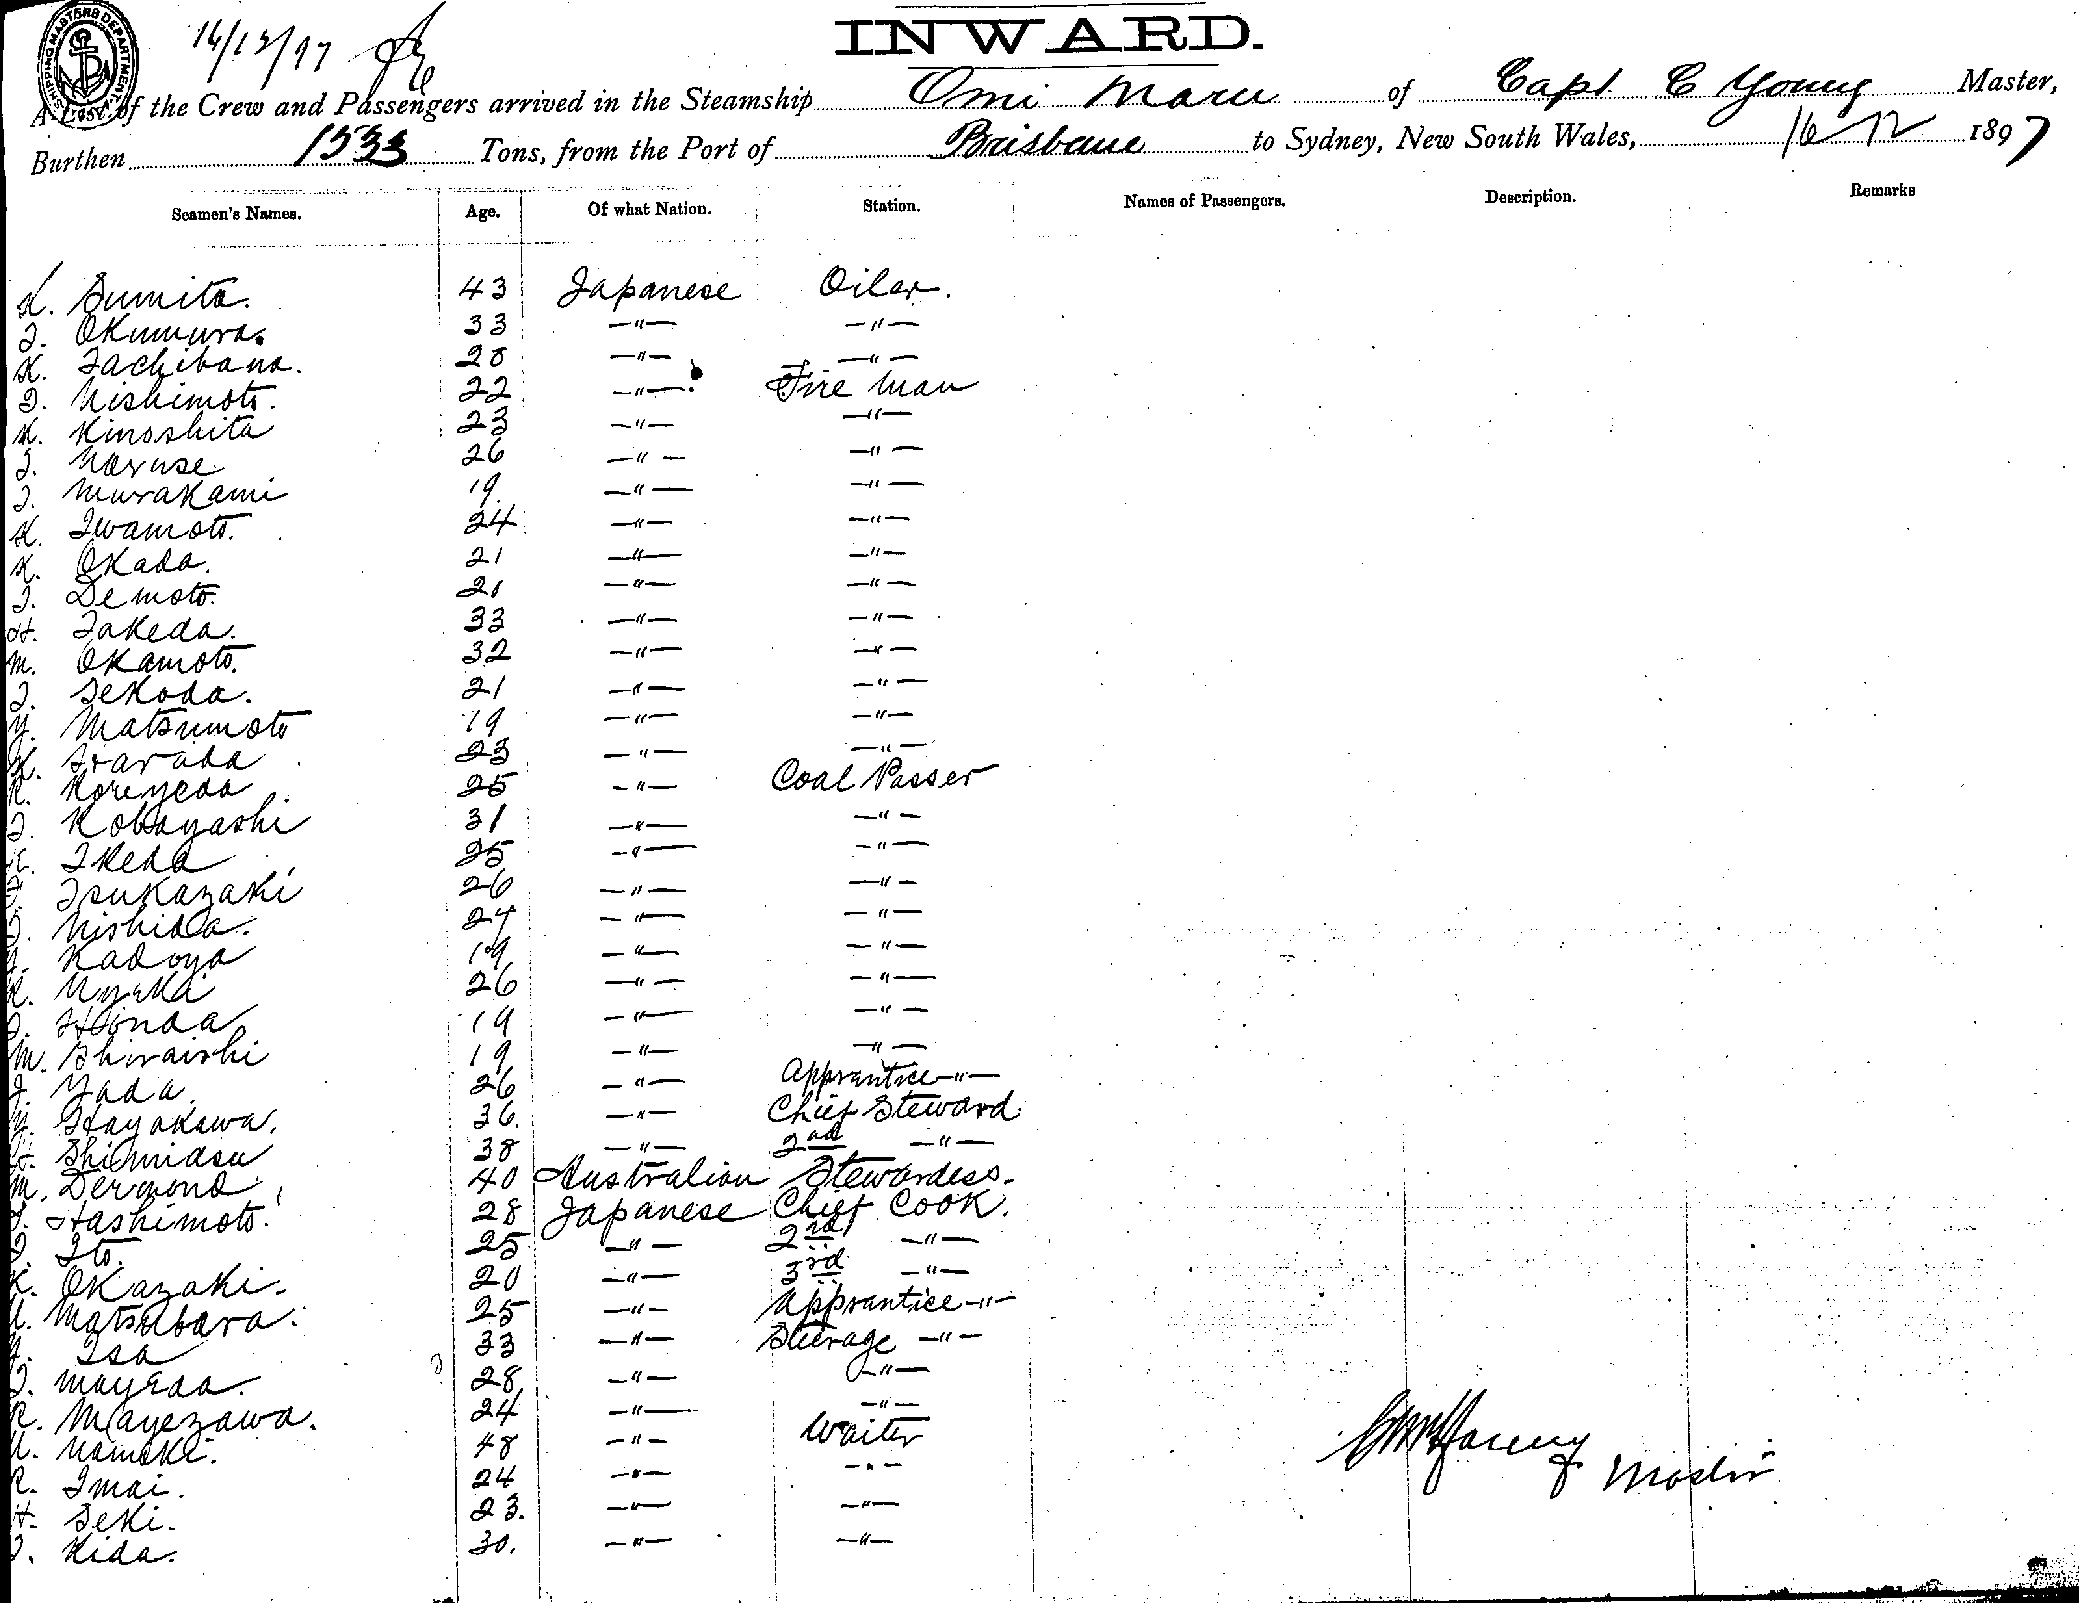 SHIPPING MASTERS DEPARTMENT
16/12/97
INWARD.
A List of the Crew and Passengers arrived in the Steamship Omi Maru of Capt C Young Master,
Burthen 1533 Tons, from the Port of Brisbane to Sydney, New South Wales, 16 12 1897
Seamen's Names. Age. Of what Nation. Station. Names of Passengers. Description. Remarks
K. Sumita. 43 Japanese Oiler.
T. Okumura. 33 —"— —"—
K. Tachibana. 28 —"— —"—
T. Nishimoto. 22 —"— Fire man
K. Kinoshita 23 —"— —"—
T. Naruse 26 —"— —"—
T. Murakami 19 —"— —"—
K. Iwamoto. 24 —"— —"—
K. Okada. 21 —"— —"—
T. Demoto. 21 —"— —"—
H. Takeda. 33 —"— —"—
M. Okamoto. 32 —"— —"—
T. Sekoda. 21 —"— —"—
Y. Matsumoto 19 —"— —"—
K. Harada 23 —"— —"—
K. Koreyeda 25 —"— Coal Passer
T. Kobayashi 31 —"— —"—
Ikeda 25 —"— —"—
Tsukazaki 26 —"— —"—
Nishida. 24 —"— —"—
Kadoya 19 —"— —"—
Uyeki 26 —"— —"—
Honda 19 —"— —"—
M. Shiraishi 19 —"— —"—
Yada. 26 —"— Apprentice —"—
Hayakawa. 36. —"— Chief Steward
H. Shimidsu 38 —"— 2nd —"—
M. Dermond 40 Australian Stewardess.
Hashimoto. 28 Japanese Chief Cook.
Ito. 25 —"— 2nd —"—
K. Okazaki. 20 —"— 3rd —"—
Matsubara. 25 —"— Apprentice —"—
Isa 33 —"— Steerage —"—
Mayeda. 28 —"— —"—
R. Mayezawa. 24 —"— —"—
Nameki. 48 —"— Waiter
R. Imai. 24 —"— —"—
H. Seki. 23. —"— —"—
Kida. 30. —"— —"—
Master